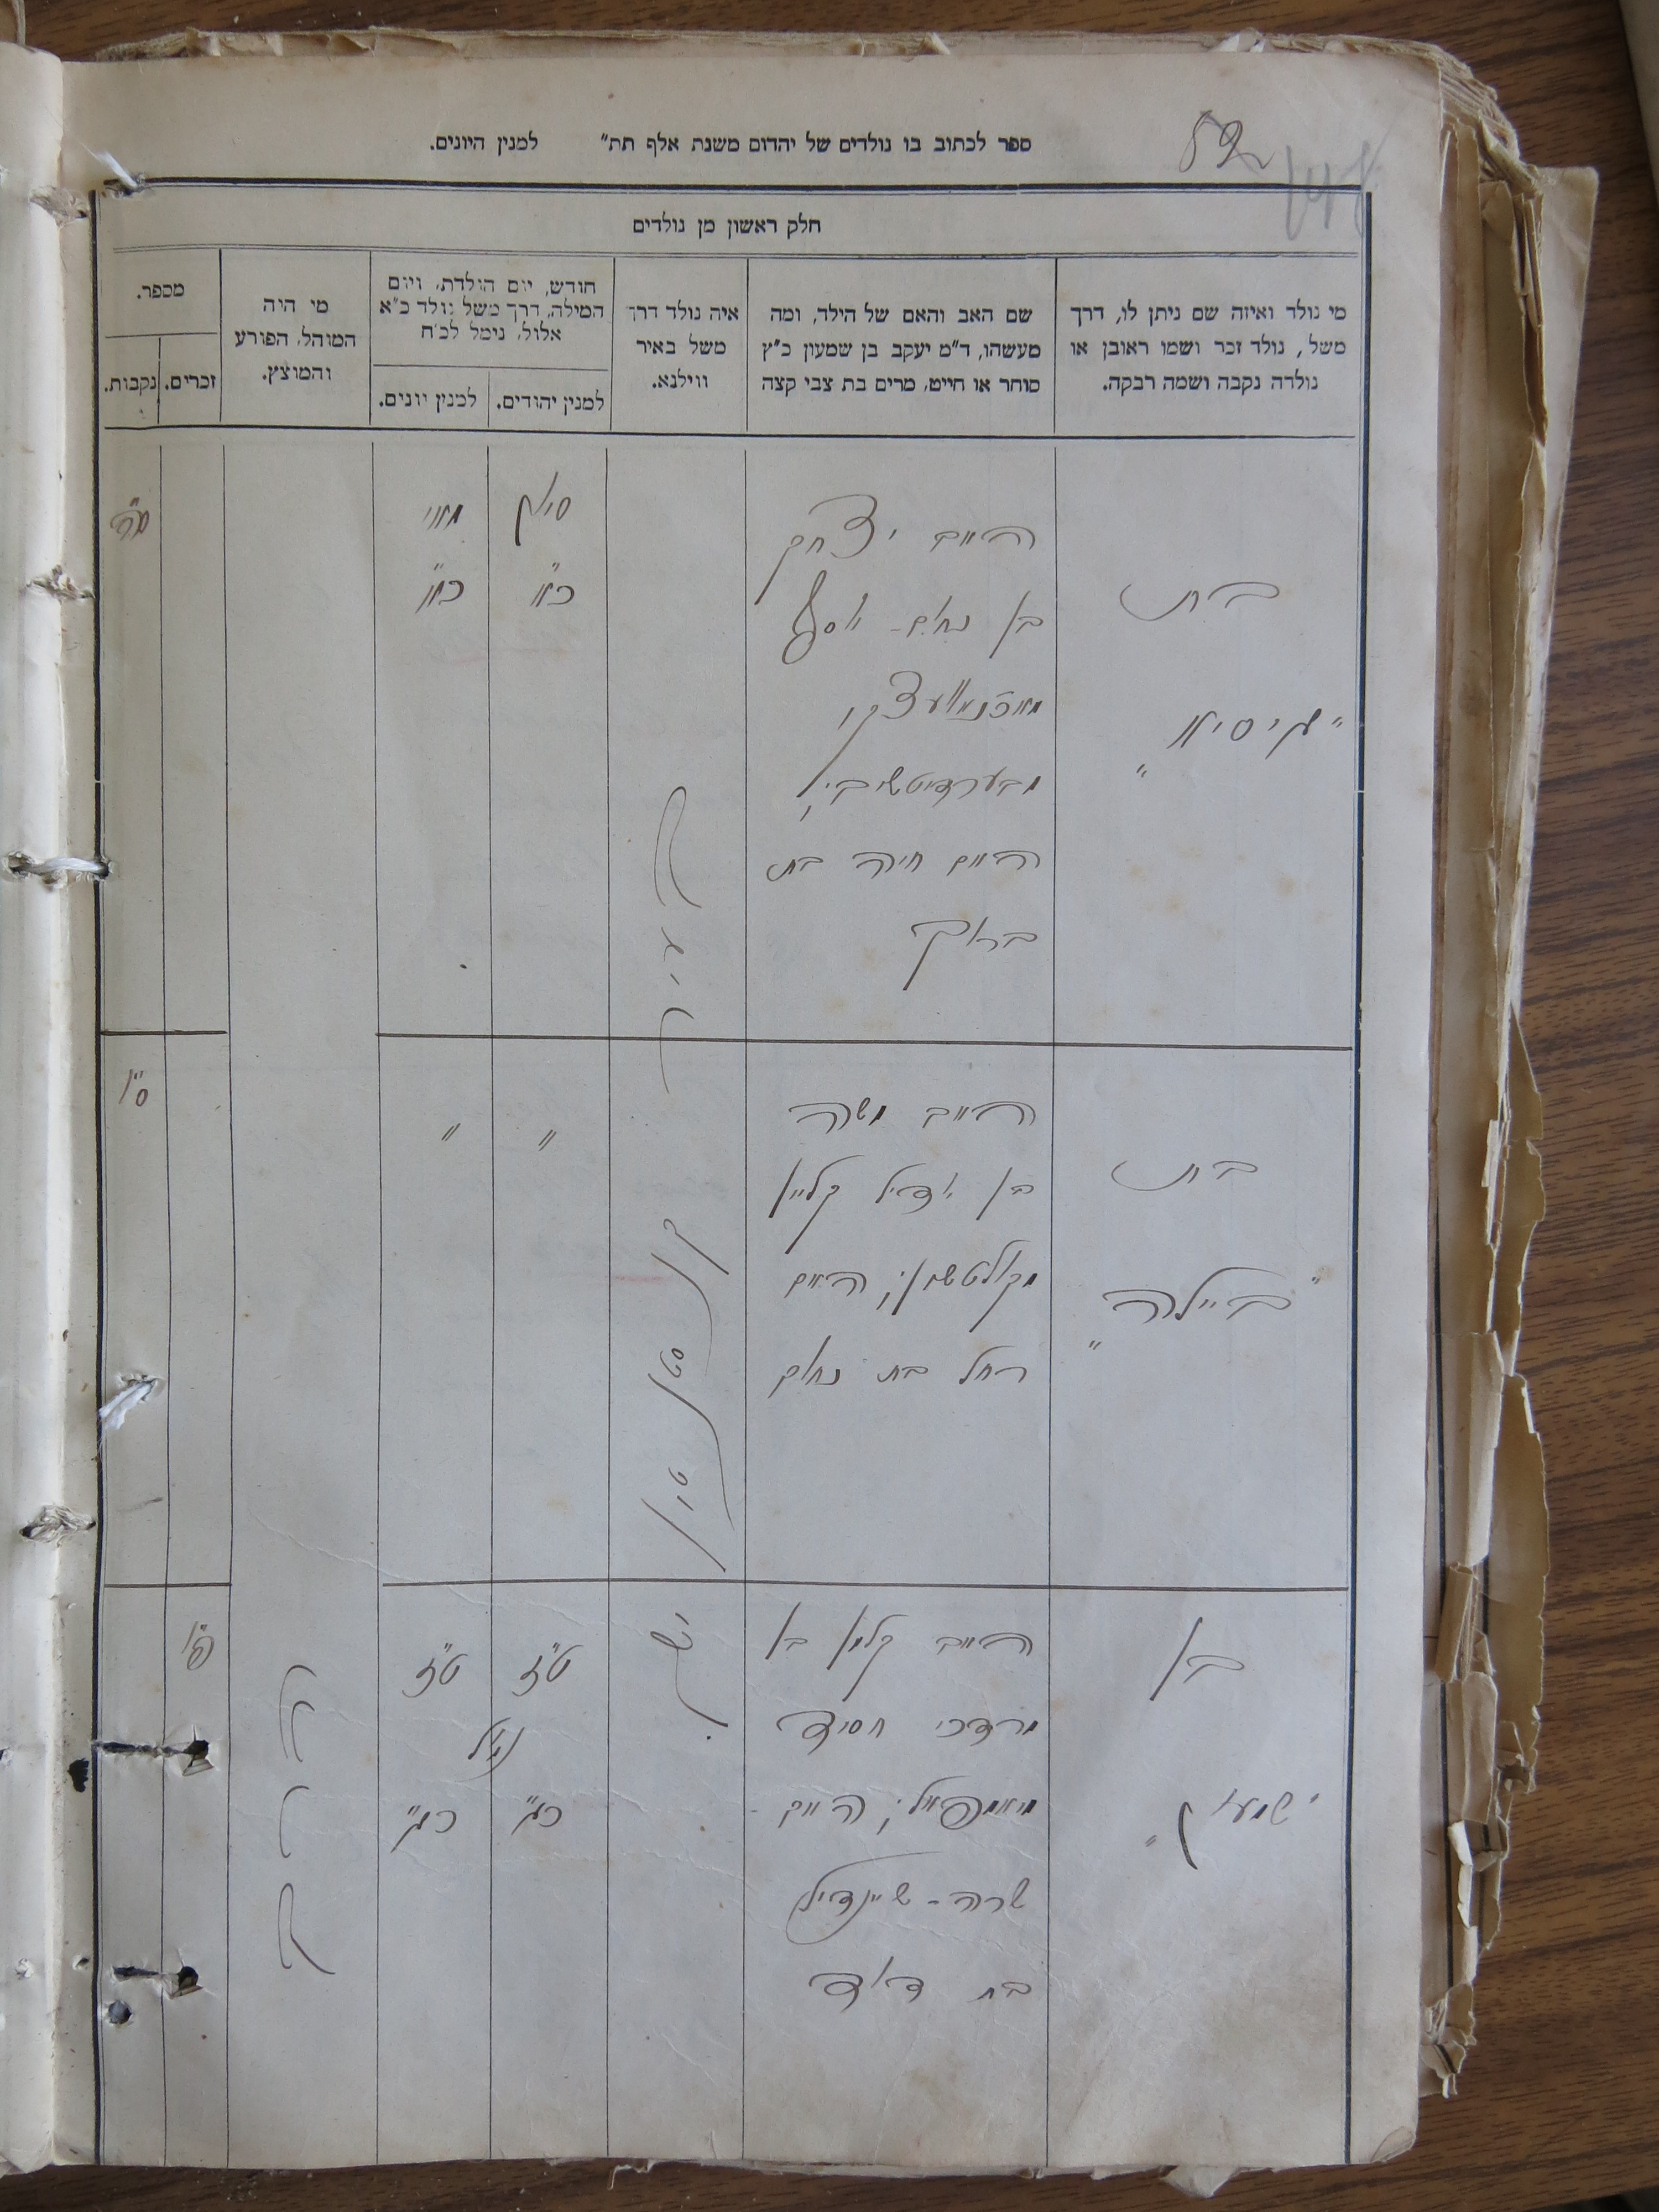 ספר לכתוב בו נולדים של יהדום משנת אלף תת״ למנין היונים.
52
חלק ראשון מן נולדים
מי נולד ואיזה שם ניתן לו, דרך
משל, נולד זכר ושמו ראובן או
נולדה נקבה ושמה רבקה.
שם האב והאם של הילד, ומה
מעשהו, ד״מ יעקב בן שמעון כ״ץ
סוחר או חייט, מרים בת צבי קצה
איה נולד דרך
משל באיר
ווילנא.
חודש, יום הולדת, ויום
המילה, דרך משל נולד כ״א
אלול, נימל לכ״ח
למנין יהודים.
למנין יונים.
מי היה
המוהל, הפורע
והמוצץ.
מספר.
זכרים.
נקבות.
בת
האב יצחק
בן נחום - יוסף
מבערדיטשיב;
האם חיה בת
ברוך
סיון
כ״א
מאי
כ״א
ס״ה
בת
"ביילה"
האב משה
בן יודיל קליין
האם
רחל בת נחום
"
"
ס״ו
בן
"שמעון"
האב קלמן בן
מרדכי חסיד
האם
שרה - שיינדיל
בת דוד
ט״ז
ט״ז
נימול
כ״ג
כ״ג
פ״ו
לעיר
קנסטנטין
ישן.